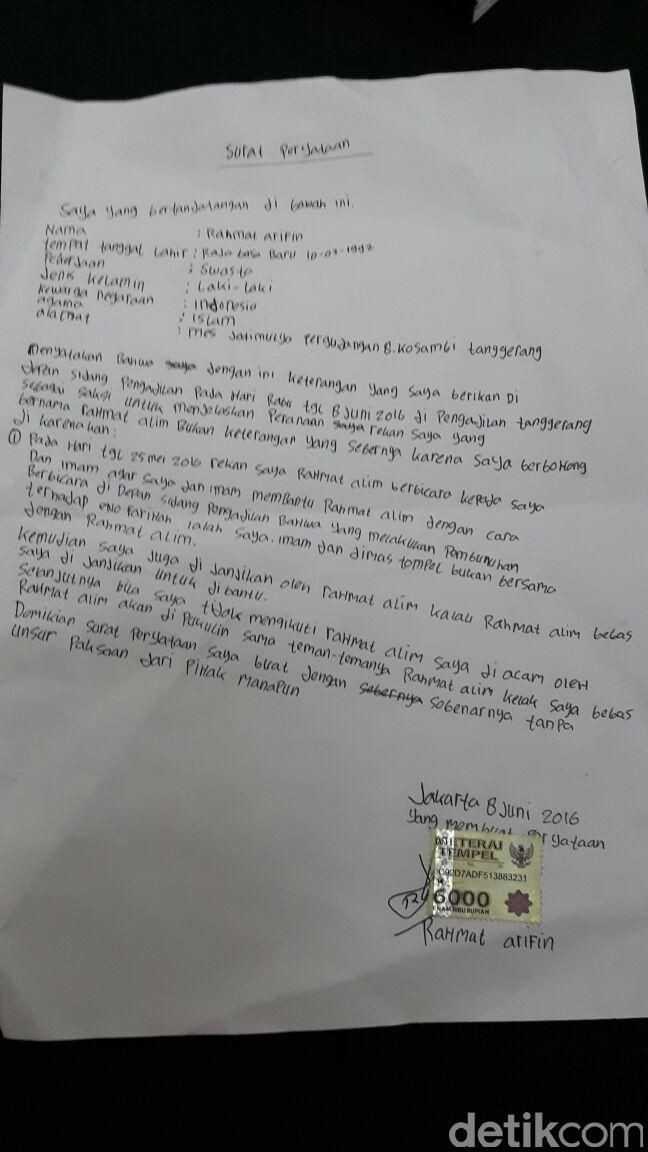 Surat Peryataan
Saya yang bertandatangan di bawah ini.
Nama : Rahmat arifin
tempat tanggal Lahir : Raja basa Baru 10-03-1992
Pekerjaan : Swasta
Jenis kelamin : Laki-laki
kewarga negaraan : Indonesia
agama : Islam
alamat : mes Jatimulya Pergudangan B. Kosambi tanggerang
menyatakan Bahwa saya dengan ini keterangan yang saya berikan Di
depan sidang Pengadilan Pada Hari Rabu tgl 8 Juni 2016 di Pengadilan tanggerang
sebagai saksi untuk menjelaskan Peranaan saya rekan saya yang
bernama Rahmat alim Bukan keterangan yang sebernya karena saya berbohong
di karenakan :
① Pada Hari tgl 25 mei 2016 rekan saya Rahmat alim berbicara kepada saya
Dan imam agar saya dan imam membantu Rahmat alim dengan cara
Berbicara di Depan sidang Pengadilan Bahwa yang melakukan Pembunuhan
terhadap eno Farihah ialah saya, imam dan dimas tompel bukan bersama
dengan Rahmat alim.
kemudian saya juga di Janjikan oleh Rahmat alim kalau Rahmat alim bebas
saya di janjikan untuk dibantu.
Selanjutnya bila saya tidak mengikuti Rahmat alim saya di acam oleh
Rahmat alim akan di Pukulin sama teman-temanya Rahmat alim kelak saya bebas
Demikian surat Peryataan saya buat dengan sebernya sebenarnya tanpa
unsur Paksaan dari Pihak manapun
Jakarta 8 Juni 2016
yang membuat Peryataan
METERAI
TEMPEL
C92D7ADF513883231
6000
ENAM RIBU RUPIAH
RaHmat ariFin
detikcom